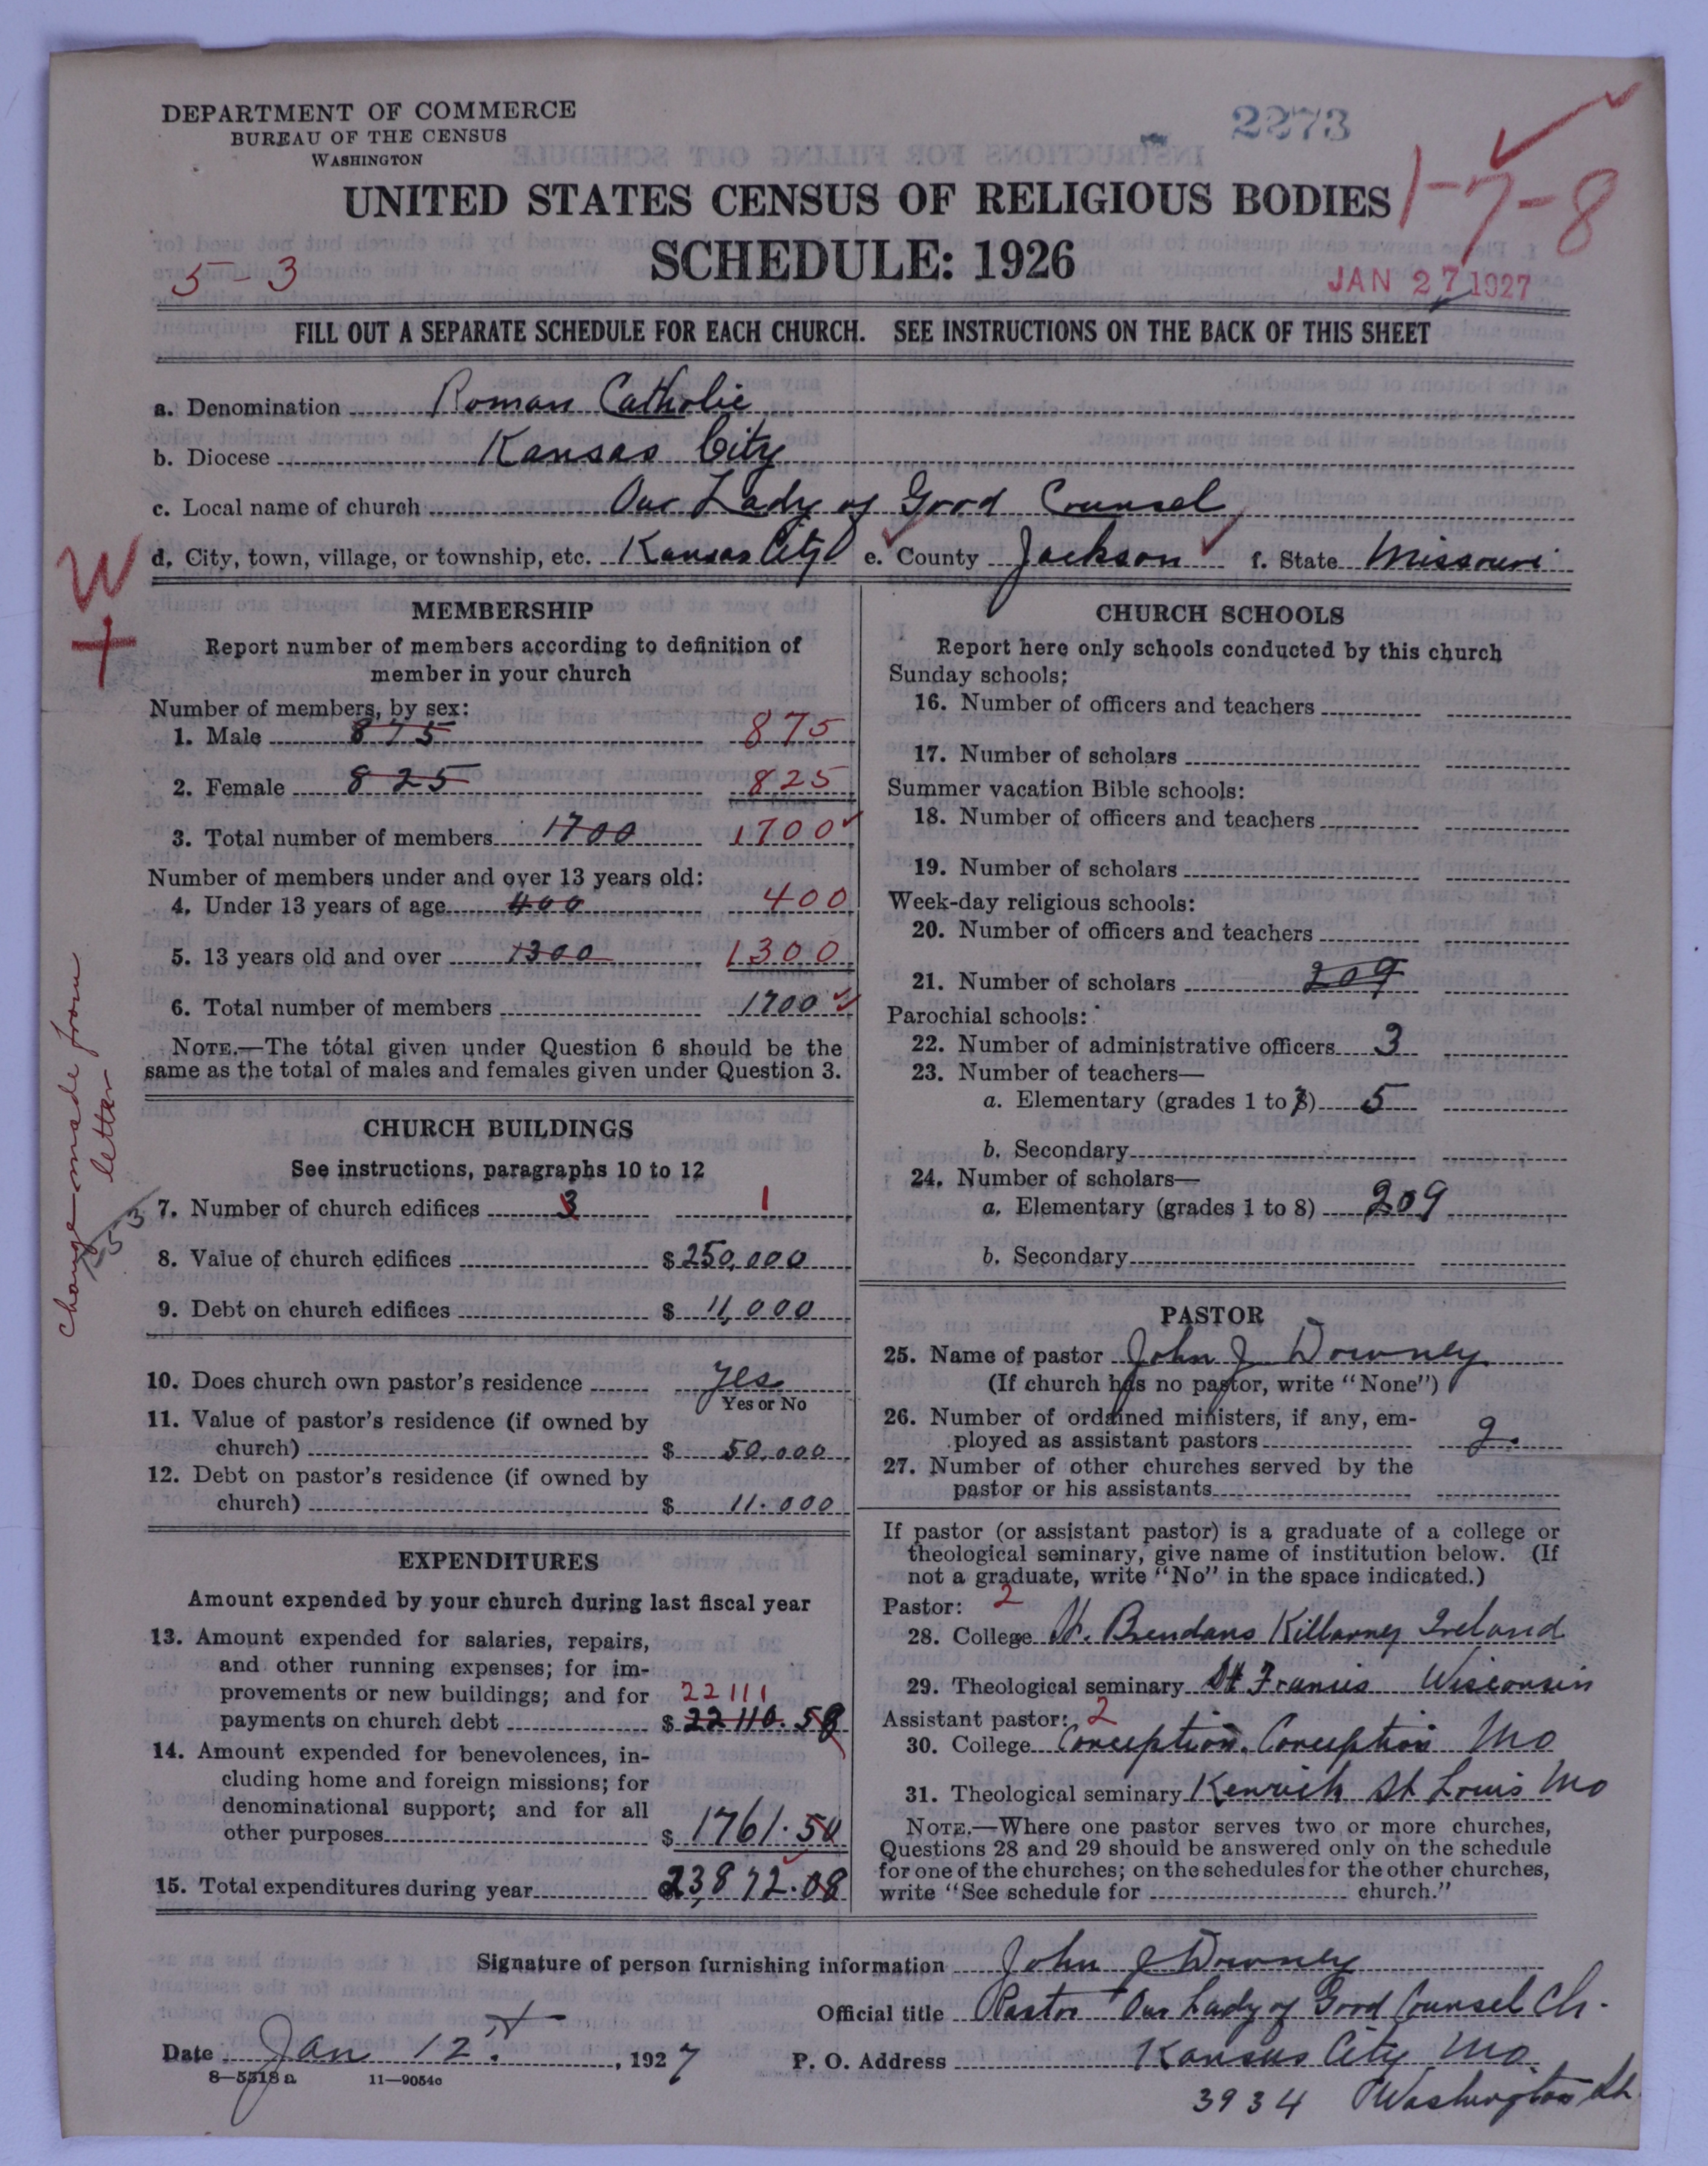 DEPARTMENT OF COMMERCE
BUREAU OF THE CENSUS
WASHINGTON
2273
UNITED STATES CENSUS OF RELIGIOUS BODIES
1-7-8
SCHEDULE: 1926
5-3
JAN 27 1927
FILL OUT A SEPARATE SCHEDULE FOR EACH CHURCH. SEE INSTRUCTIONS ON THE BACK OF THIS SHEET
a. Denomination Roman Catholic
b. Diocese Kansas City
c. Local name of church Our Lady of Good Counsel
d. City, town, village, or township, etc. Kansas City e. County Jackson f. State Missouri
W
+
MEMBERSHIP
Report number of members according to definition of
member in your church
Number of members, by sex:
1. Male 875 875
2. Female 825 825
3. Total number of members 1700 1700
Number of members under and over 13 years old:
4. Under 13 years of age 400 400
5. 13 years old and over 1300 1300
6. Total number of members 1700
NOTE.—The total given under Question 6 should be the
same as the total of males and females given under Question 3.
change made from
letter
553
CHURCH BUILDINGS
See instructions, paragraphs 10 to 12
7. Number of church edifices 3 1
8. Value of church edifices $ 250,000
9. Debt on church edifices $ 11,000
10. Does church own pastor's residence yes
Yes or No
11. Value of pastor's residence (if owned by
church) $ 50,000
12. Debt on pastor's residence (if owned by
church) $ 11.000
EXPENDITURES
Amount expended by your church during last fiscal year
13. Amount expended for salaries, repairs,
and other running expenses; for im-
provements or new buildings; and for 22111
payments on church debt $ 22110.58
14. Amount expended for benevolences, in-
cluding home and foreign missions; for
denominational support; and for all
other purposes $ 1761.50
15. Total expenditures during year 23872.08
CHURCH SCHOOLS
Report here only schools conducted by this church
Sunday schools:
16. Number of officers and teachers
17. Number of scholars
Summer vacation Bible schools:
18. Number of officers and teachers
19. Number of scholars
Week-day religious schools:
20. Number of officers and teachers
21. Number of scholars 209
Parochial schools:
22. Number of administrative officers 3
23. Number of teachers—
a. Elementary (grades 1 to 8) 5
b. Secondary
24. Number of scholars—
a. Elementary (grades 1 to 8) 209
b. Secondary
PASTOR
25. Name of pastor John J Downey
(If church has no pastor, write "None")
26. Number of ordained ministers, if any, em-
ployed as assistant pastors 2.
27. Number of other churches served by the
pastor or his assistants
If pastor (or assistant pastor) is a graduate of a college or
theological seminary, give name of institution below. (If
not a graduate, write "No" in the space indicated.)
Pastor: 2
28. College St. Brendans Killarney Ireland
29. Theological seminary St Francis Wisconsin
Assistant pastor: 2
30. College Conception. Conception Mo
31. Theological seminary Kenrick St Louis Mo
NOTE.—Where one pastor serves two or more churches,
Questions 28 and 29 should be answered only on the schedule
for one of the churches; on the schedules for the other churches,
write "See schedule for church."
Signature of person furnishing information John J Downey
Official title Pastor Our Lady of Good Counsel Ch.
Date Jan 12, 1927 P. O. Address Kansas City Mo.
8—5518 a 11—9054c
3934 Washington St.